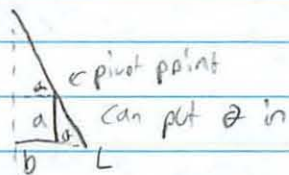 ← pivot point
a can put θ in
b L